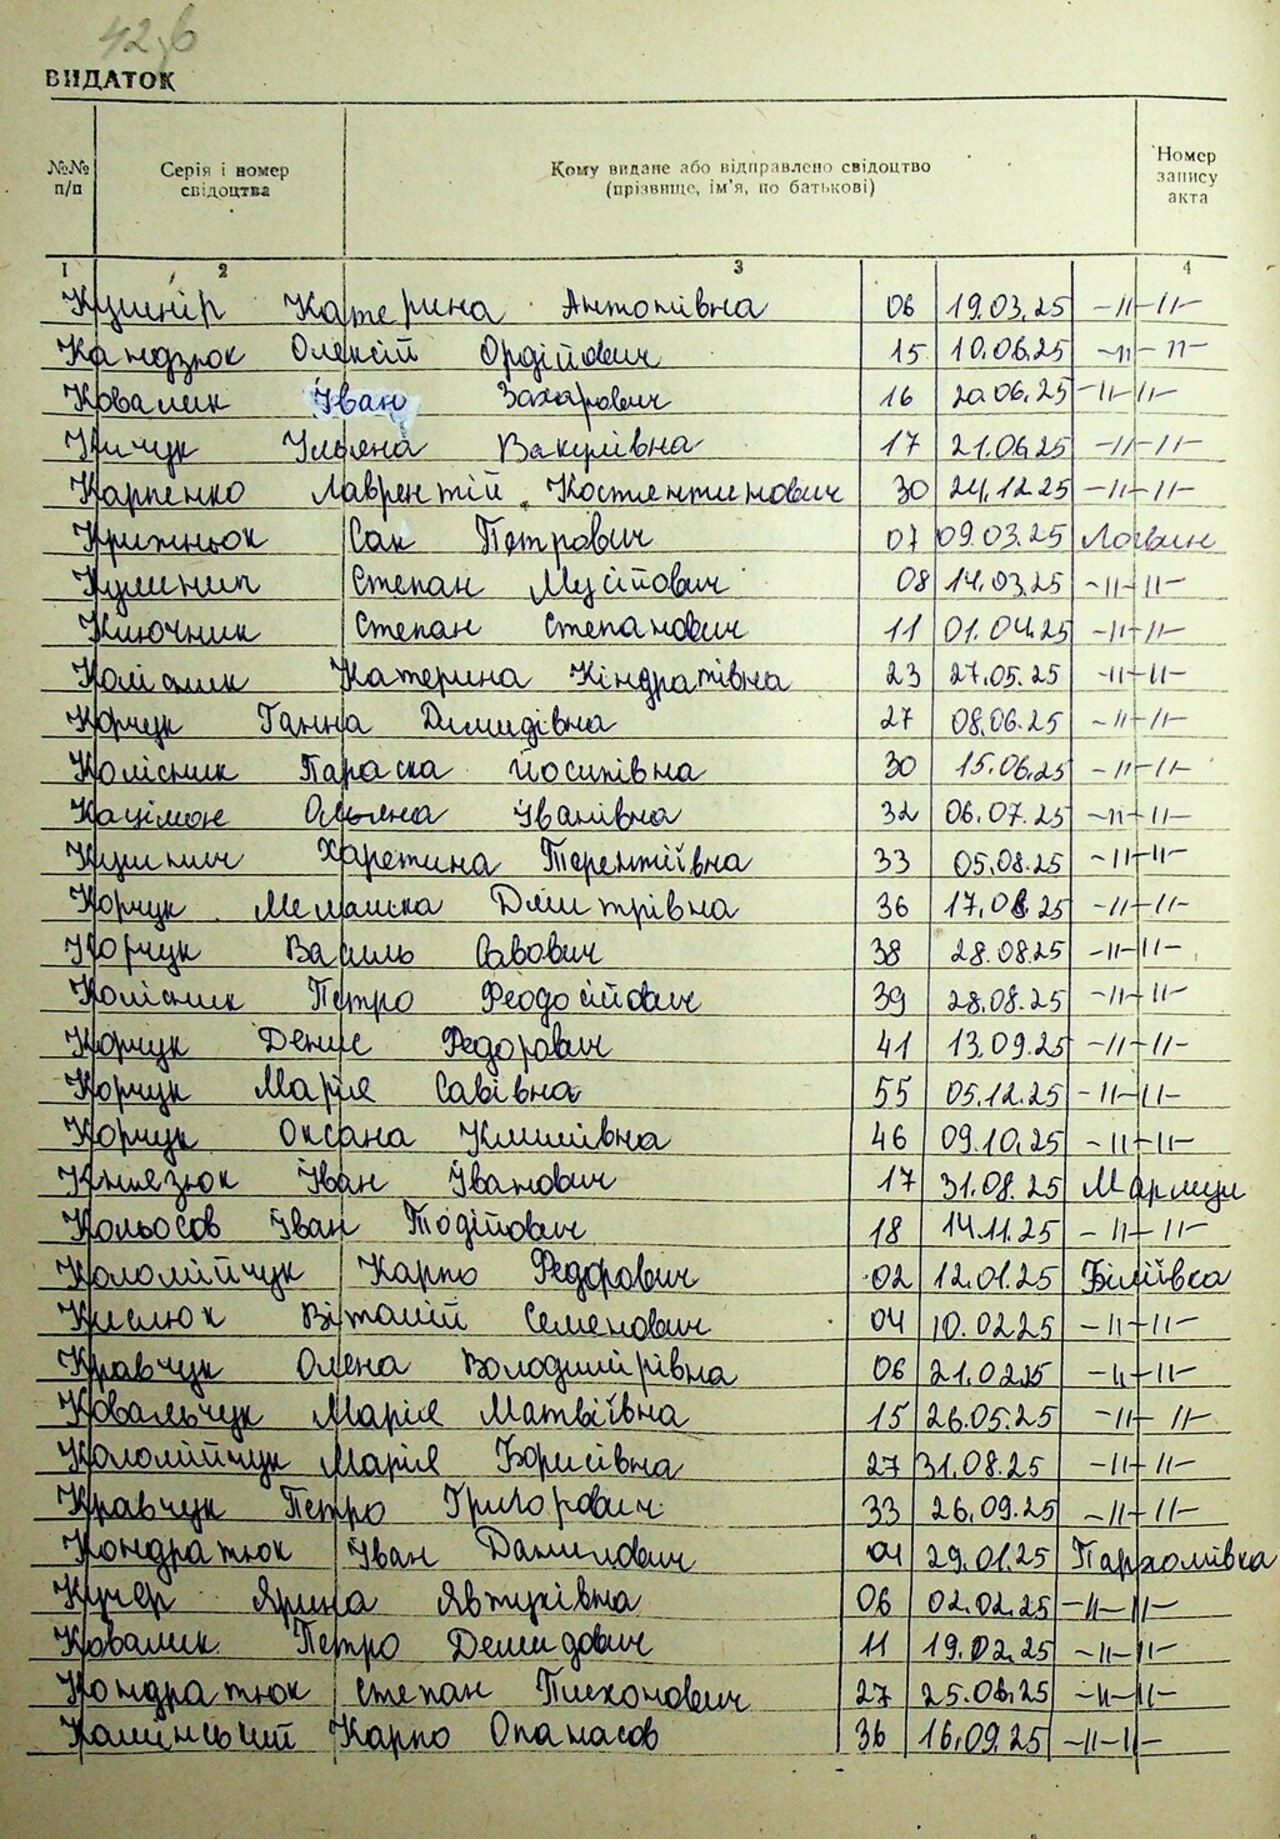 42б
ВИДАТОК
№№ п/п
Серія і номер свідоцтва
Кому видане або відправлено свідоцтво (прізвище, ім'я, по батькові)
Номер запису акта
1 2 3 4
Кушнір Катерина Антонівна 06 19.03.25 -〃-〃-
Кандзюк Олексій Ордійович 15 10.06.25 -〃-〃-
Ковалик Іван Захарович 16 20.06.25 -〃-〃-
Кичук Ульяна Вакулівна 17 21.06.25 -〃-〃-
Карпенко Лаврентій Костянтинович 30 24.12.25 -〃-〃-
Крижньок Сак Петрович 07 09.03.25 Логвин
Кушнип Степан Мусійович 08 14.03.25 -〃-〃-
Ключник Степан Степанович 11 01.04.25 -〃-〃-
Колісник Катерина Кіндратівна 23 27.05.25 -〃-〃-
Корчук Ганна Демидівна 27 08.06.25 -〃-〃-
Колісник Параска Йосипівна 30 15.06.25 -〃-〃-
Кацімон Ольяна Іванівна 32 06.07.25 -〃-〃-
Харетина Терентіївна 33 05.08.25 -〃-〃-
Корчук Мелашка Дмитрівна 36 17.08.25 -〃-〃-
Корчук Василь Савович 38 28.08.25 -〃-〃-
Колісник Петро Феодосійович 39 28.08.25 -〃-〃-
Корчук Денис Федорович 41 13.09.25 -〃-〃-
Корчук Марія Савівна 55 05.12.25 -〃-〃-
Корчук Оксана Климівна 46 09.10.25 -〃-〃-
Князюк Іван Іванович 17 31.08.25
Кольосов Іван Тодійович 18 14.11.25 -〃-〃-
Коломійчук Карпо Федорович 02 12.01.25 Біліївка
Кислюк Віталій Семенович 04 10.02.25 -〃-〃-
Кравчук Олена Володимирівна 06 21.02.25 -〃-〃-
Ковальчук Марія Матвіївна 15 26.05.25 -〃-〃-
Коломійчук Марія Борисівна 27 31.08.25 -〃-〃-
Кравчук Петро Григорович 33 26.09.25 -〃-〃-
Кондратюк Іван Данилович 04 29.01.25 Пархомівка
Кучер Ярина Явтухівна 06 02.02.25 -〃-〃-
Ковалик Петро Демидович 11 19.02.25 -〃-〃-
Кондратюк Степан Тихонович 27 25.08.25 -〃-〃-
Камінський Карпо Опанасов 36 16.09.25 -〃-〃-